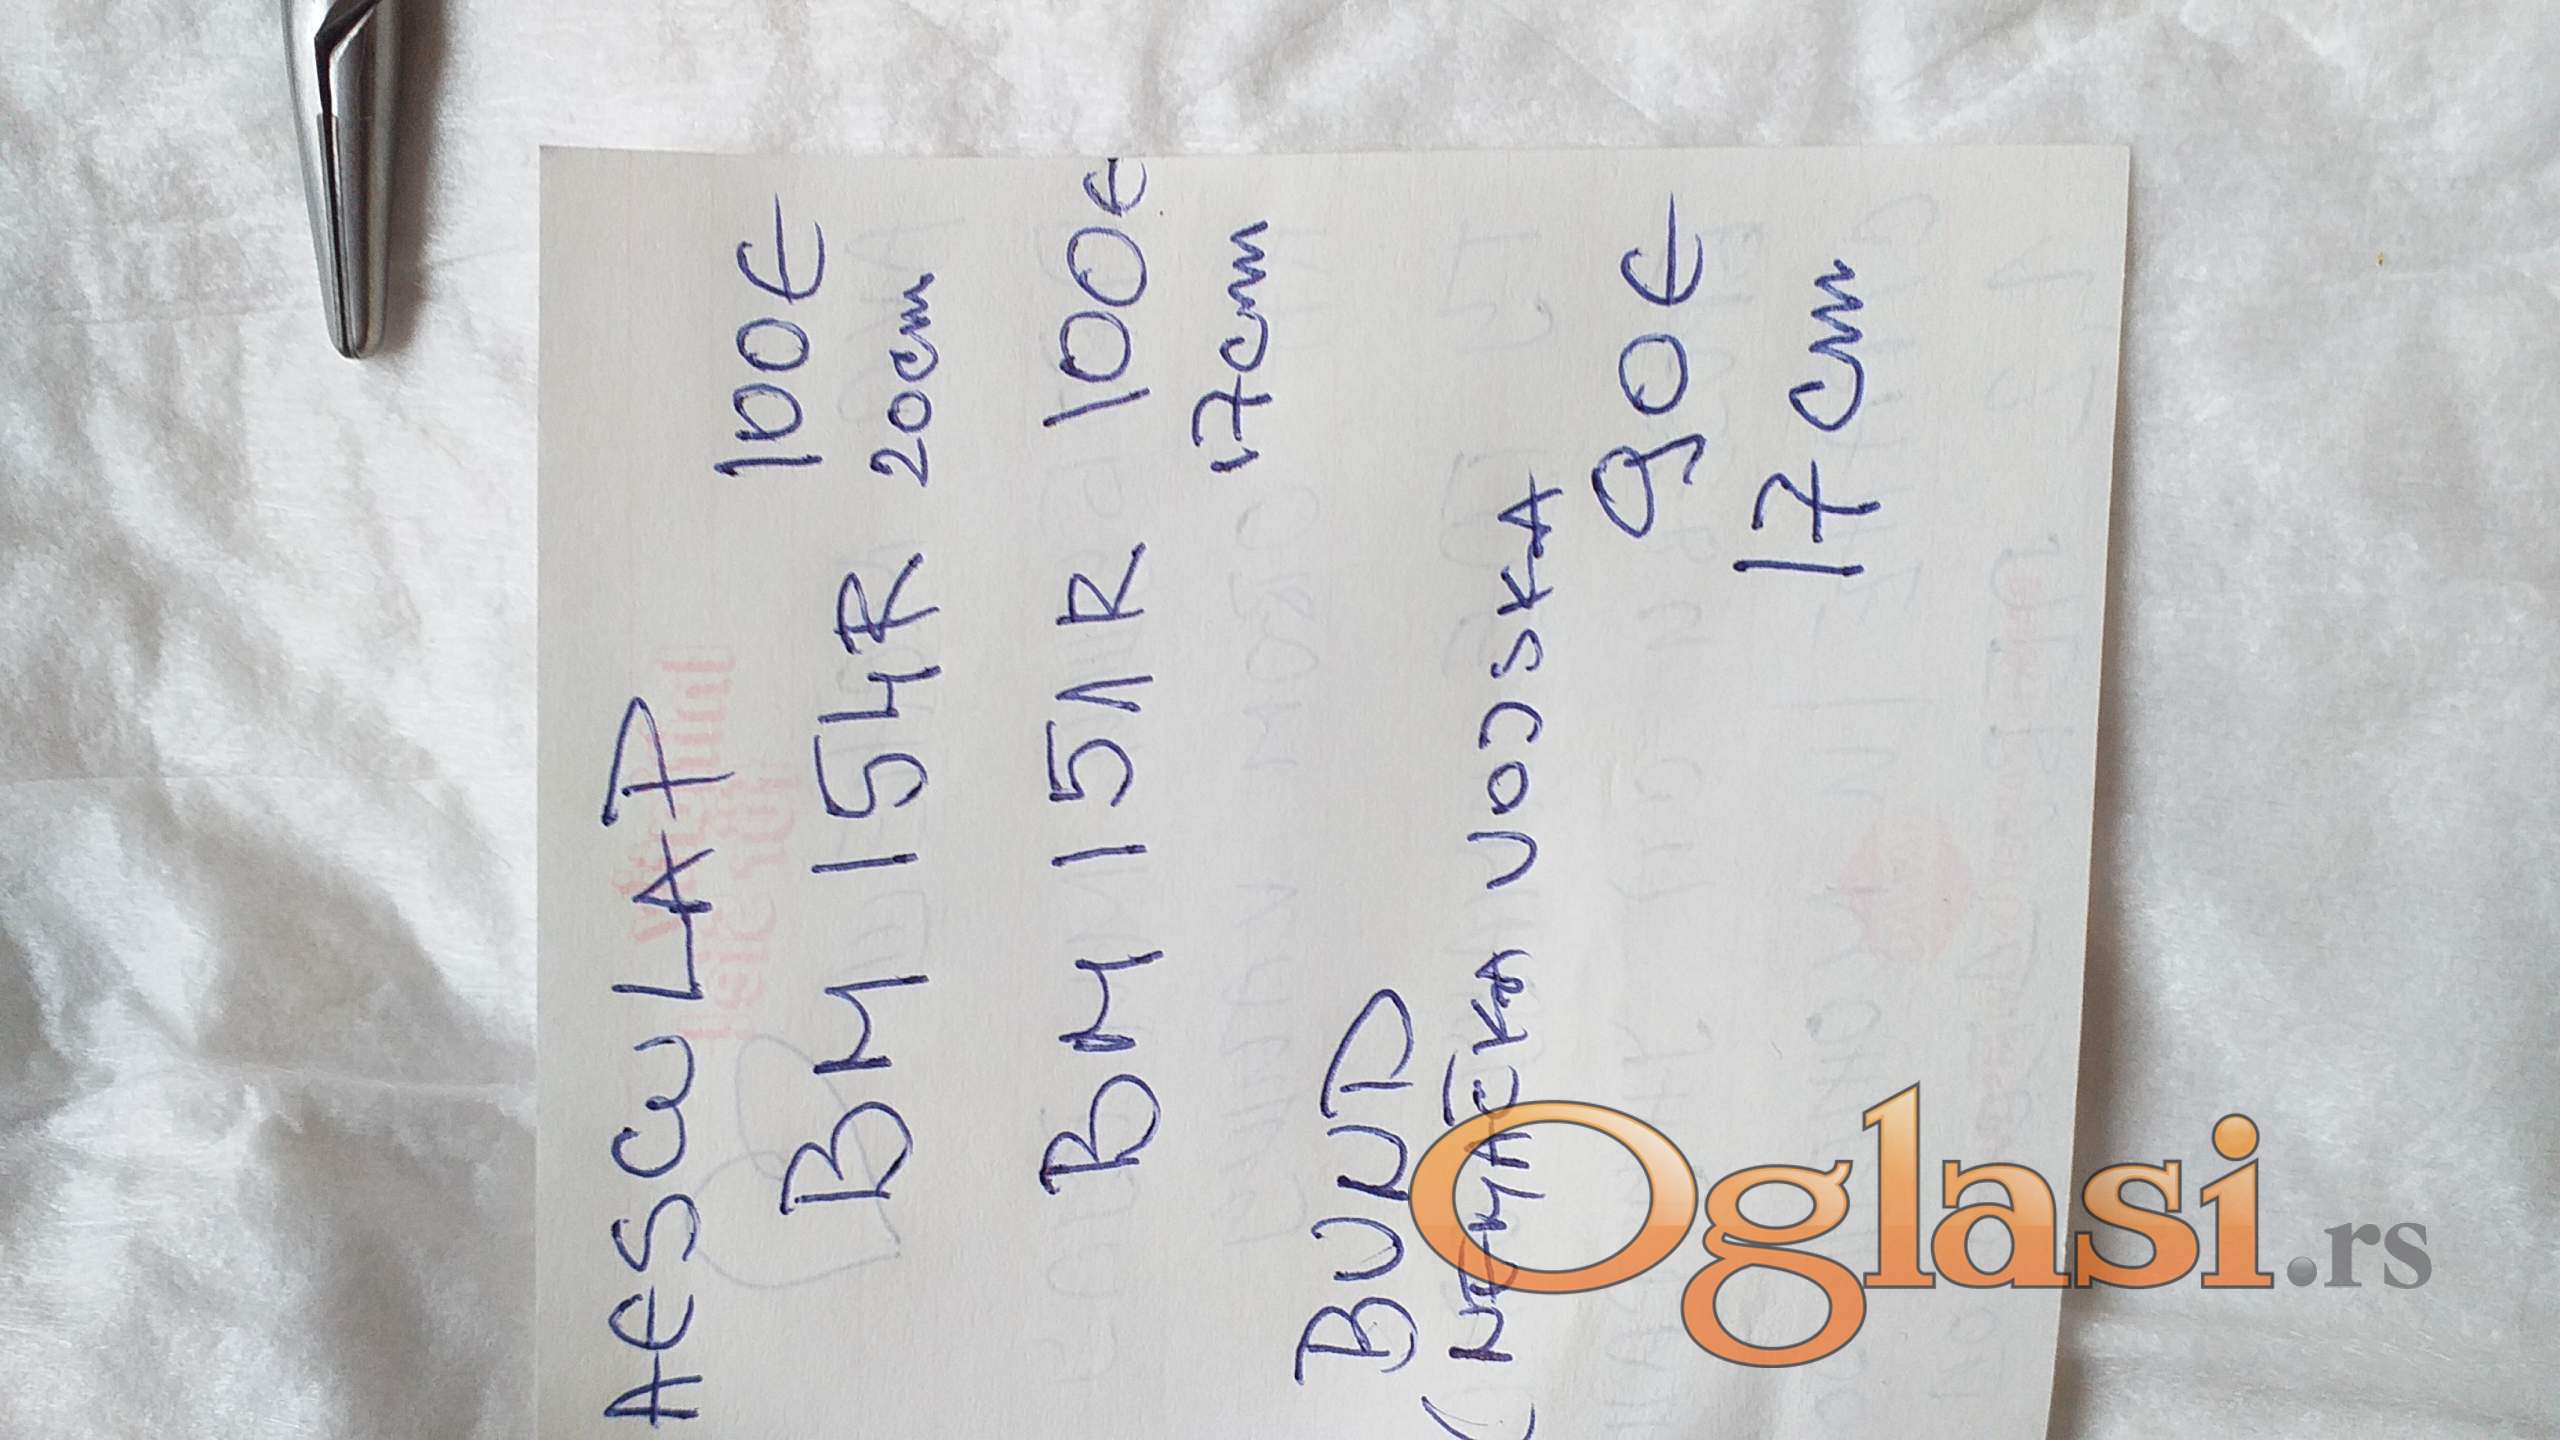 AESCULAP
100€
BM 154R 20cm
BM 151R 100€
17cm
BUND
(NEMAČKA VOJSKA
90€
17cm
Oglasi.rs